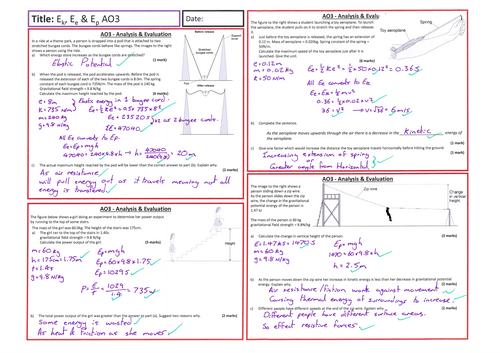 Title: Ek, Ee & Ep AO3
Date:
AO3 - Analysis & Evaluation
In a ride at a theme park, a person is strapped into a pod that is attached to two
stretched bungee cords. The bungee cords behave like springs. The images to the right
shows a person using the ride.
a) Which energy store increases as the bungee cords are stretched?
(1 mark)
Elastic Potential
b) When the pod is released, the pod accelerates upwards. Before the pod is
released the extension of each of the two bungee cords was 8.0m. The spring
constant of each bungee cord is 735N/m. The mass of the pod is 240 kg.
Gravitational field strength = 9.8 N/kg
Calculate the maximum height reached by the pod.
Before release
After release
Stretched
bungee cord
e = 8m
k = 735 N/m
m = 240 kg
g = 9.8 N/kg
Elastic energy in 1 bungee cord.
Ee = ½ke² = 0.5 x 735 x 8²
Ee = 23520 J
x2 as 2 bungee cords.
ΣE = 47040
All Ee converts to Ep.
Ee = Ep = mgh
47040 = 240 x 9.8 x h → h = 47040 / (240x9.8) = 20 m
c) The actual maximum height reached by the pod will be lower than the correct answer to part (b). Explain why.
(2 marks)
As air resistance
will pull energy out as it travels meaning not all
energy is transferred
AO3 - Analysis & Evaluation
The figure below shows a girl doing an experiment to determine her power output
by running to the top of some stairs.
The mass of the girl was 60.0kg. The height of the stairs was 175cm.
a) The girl ran to the top of the stairs in 1.40s.
gravitational field strength = 9.8 N/kg
Calculate the power output of the girl.
Height
m = 60kg
h = 175cm = 1.75m
t = 1.4s
g = 9.8 N/kg
Ep = mgh
Ep = 60 x 9.8 x 1.75
Ep = 1029 J
P = E/t = 1029/1.4 = 735 W
b) The total power output of the girl was greater than the answer to part (a). Suggest two reasons why.
(2 marks)
Some energy is wasted
As heat & friction as she moves
AO3 - Analysis & Evalu
the figure to the right shows a student launching a toy aeroplane. To launch
the aeroplane, the student pulls on it to stretch the spring and then releases.
Spring
Toy aeroplane
Just before the toy aeroplane is released, the spring has an extension of
0.12 m. Mass of aeroplane = 0.020kg. Spring constant of the spring =
50N/m.
Calculate the maximum speed of the toy aeroplane just after it is
launched. Give the unit.
e = 0.12m
m = 0.02 kg
k = 50 N/m
Ee = ½ke² = ½ x 50 x 0.12² = 0.36 J
All Ee converts to Ek
Ee = Ek = ½mv²
0.36 = ½ x 0.02 x v²
36 = v² → v = √36 = 6 m/s
b) Complete the sentence.
As the aeroplane moves upwards through the air there is a decrease in the Kinetic energy of
the aeroplane.
c) Give one factor which would increase the distance the toy aeroplane travels horizontally before hitting the ground.
Increasing extension of spring
or
Greater angle from Horizontal
AO3 - Analysis & Evaluation
The image to the right shows a
person sliding down a zip wire.
As the person slides down the
zip wire, the change in the
gravitational potential energy of the person is
1.47 kJ
The mass of the person is 60 kg
gravitational field strength = 9.8 N/kg
Zip wire
Change
in vertical
height
a) Calculate the change in vertical height of the person.
E = 1.47kJ = 1470 J
m = 60kg
g = 9.8 N/kg
Ep = mgh
1470 = 60 x 9.8 x h
h = 2.5m
b) As the person moves down the zip wire her increase in kinetic energy is less than her decrease in gravitational potential
energy. Explain why.
(2 marks)
Air resistance / friction work against movement
Causing thermal energy of surroundings to increase.
c) Different people have different speeds at the end of the zip wire. Explain why.
Different people have different surface areas.
So effect resistive forces